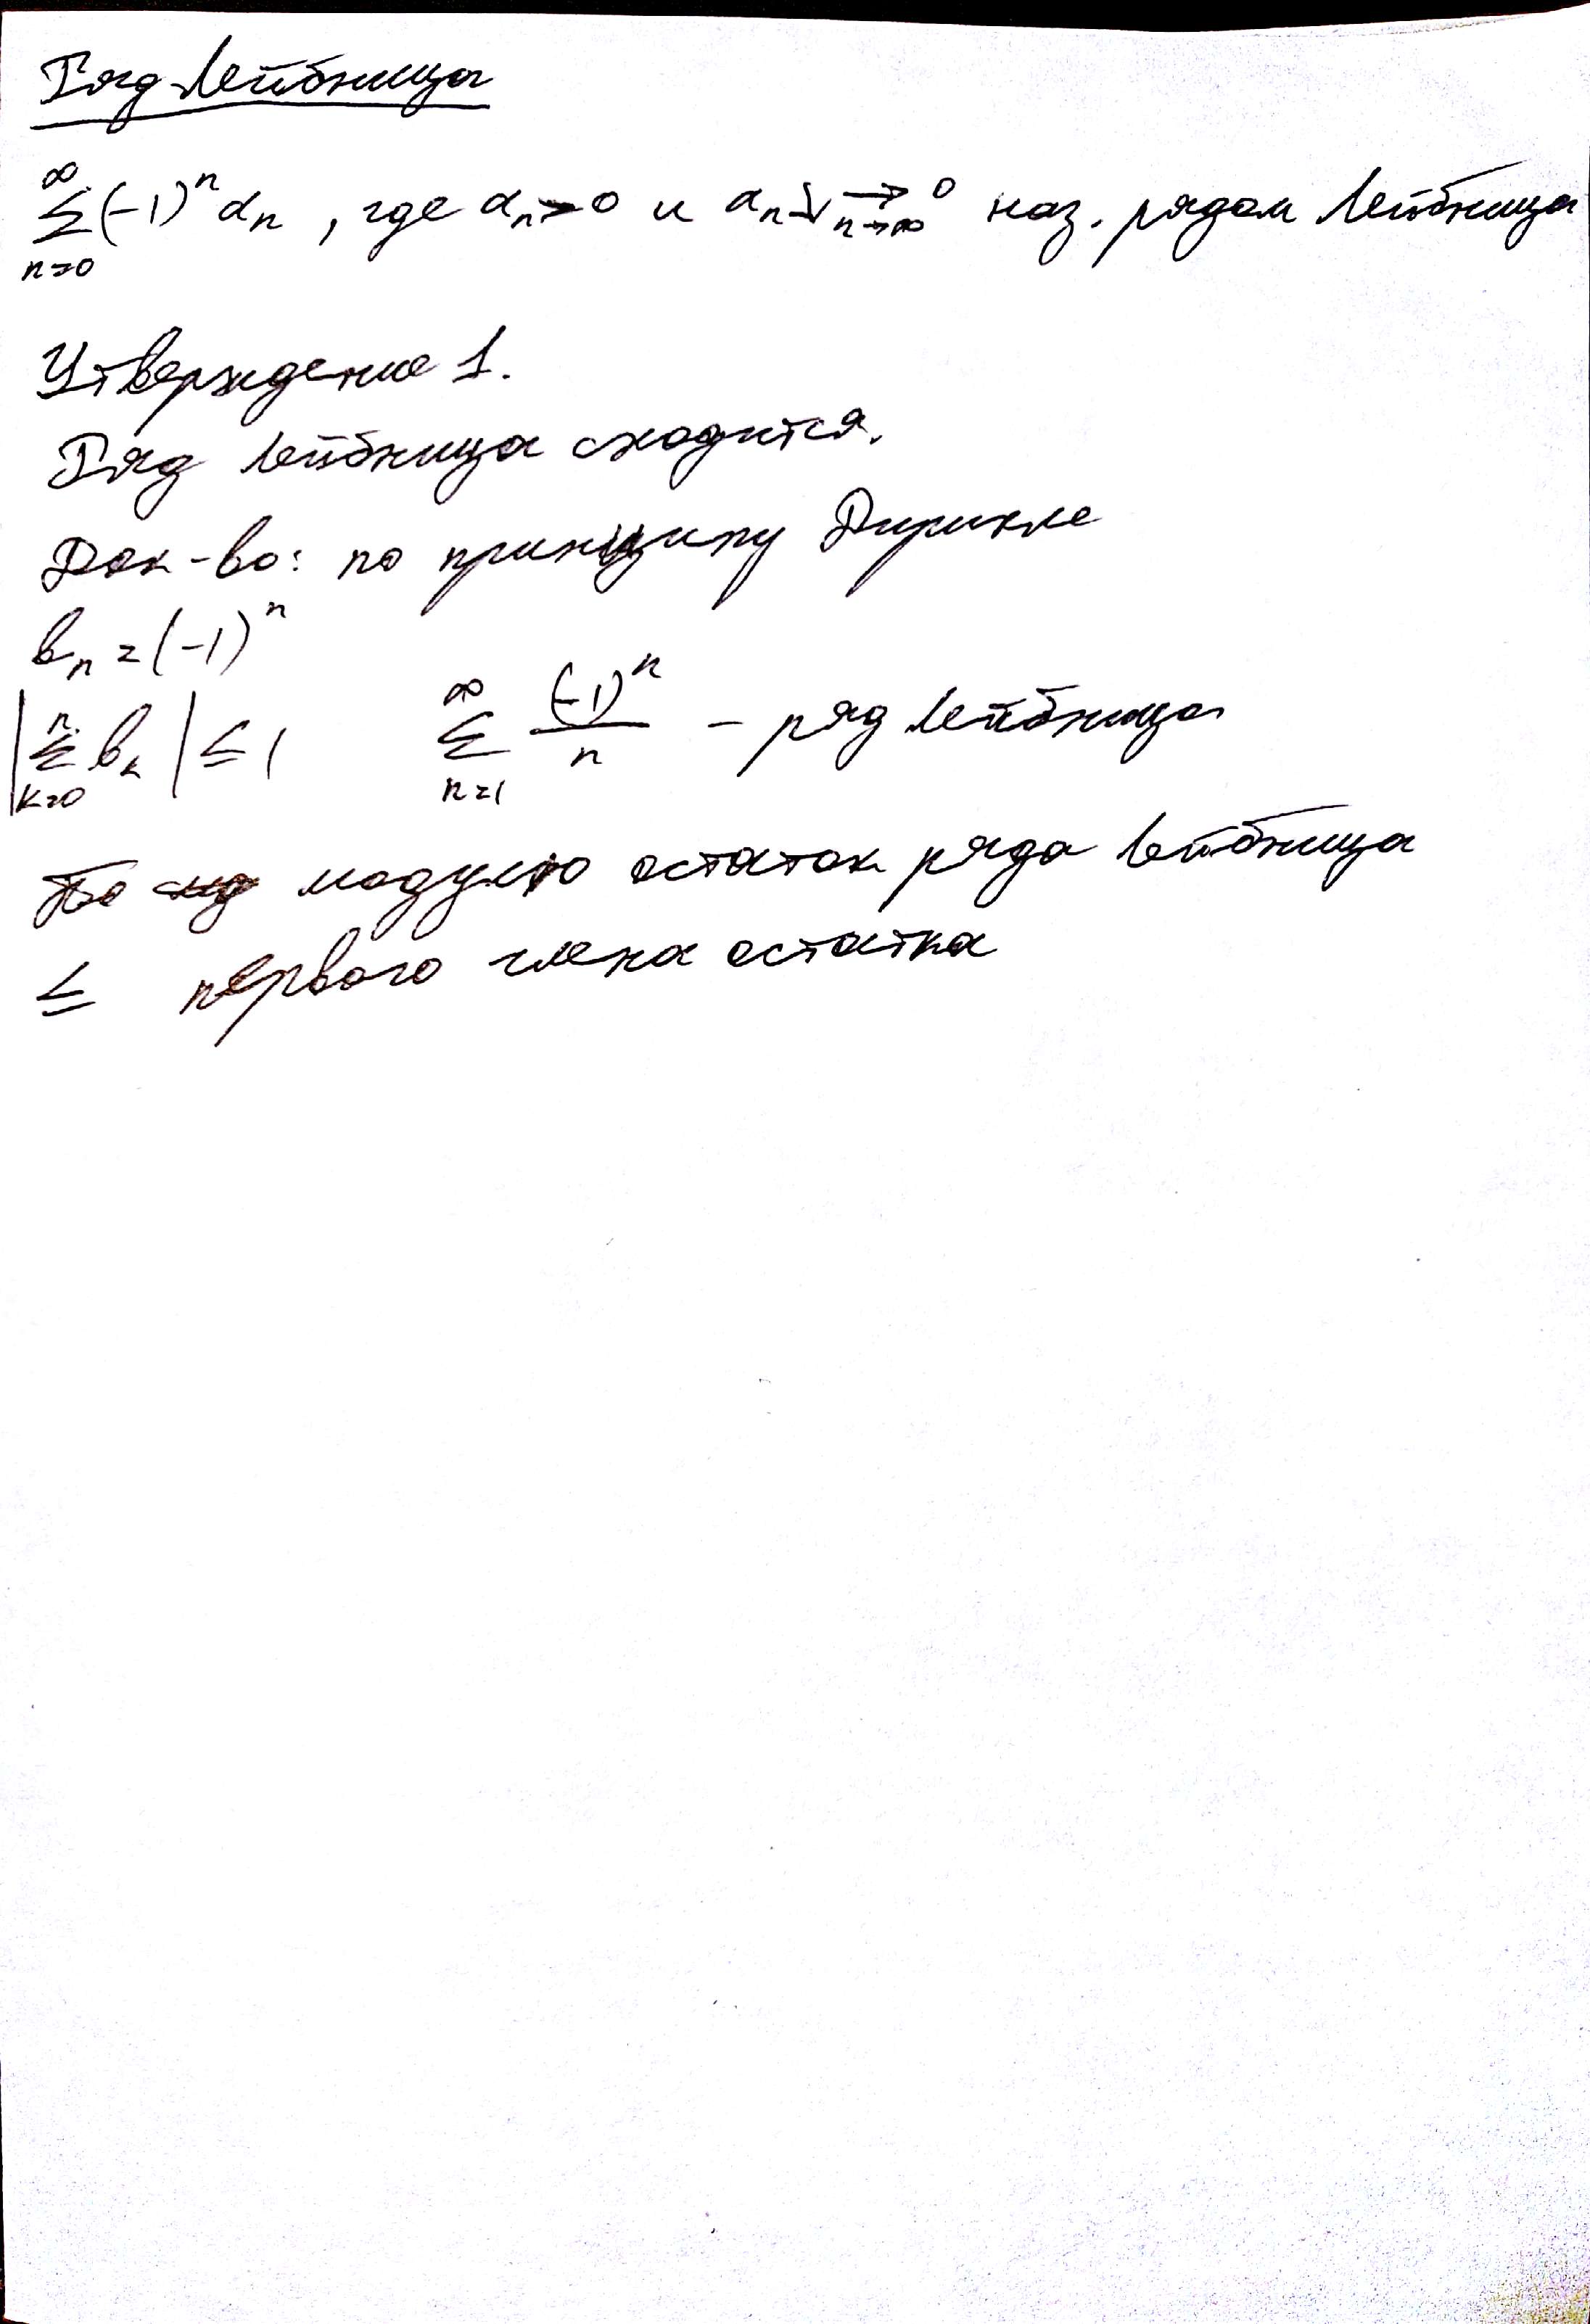 Ряд Лейбница
∞ ∑ n=0 (-1)^n a_n , где a_n > 0 и a_n ↓ → 0 n→∞ наз. рядом Лейбница
Утверждение 1.
Ряд Лейбница сходится.
Док-во: по принципу Дирихле
b_n = (-1)^n
|n ∑ k=0 b_k| ≤ 1 ∞ ∑ n=1 (-1)^n / n – ряд Лейбница
По модулю остаток ряда Лейбница
≤ первого члена остатка